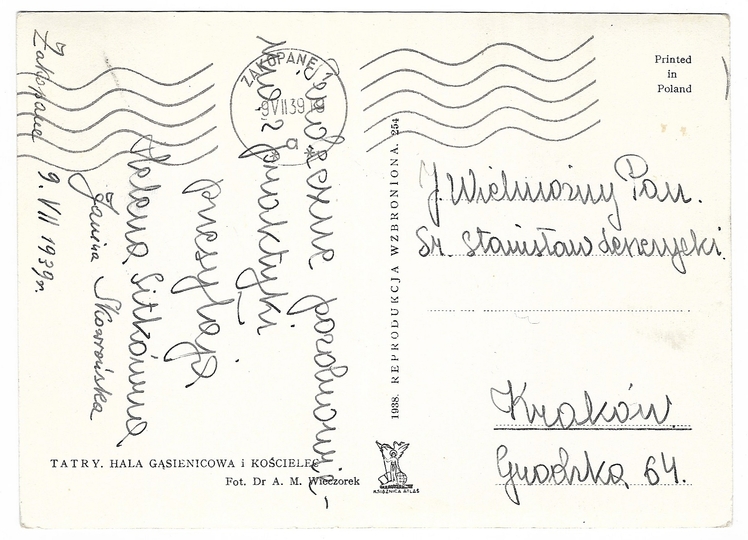 Zakopane 9. VII 1939 r.
Serdeczne pozdrowie-
nia z praktyki
przesyłają
Helena Sitkówna
Janina Skowrońska
ZAKOPANE 1
9 VII 39
a
TATRY. HALA GĄSIENICOWA i KOŚCIELEC
Fot. Dr A. M. Wieczorek
1938. REPRODUKCJA WZBRONIONA. 254
KSIĄŻNICA ATLAS
Printed
in
Poland
J. Wielmożny Pan.
Dr. Stanisław Leszczycki
Kraków
Grodzka 64.